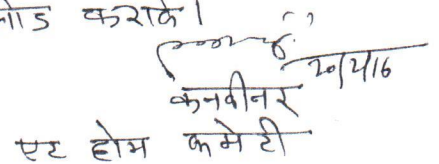 लोड कराके।
20/4/16
कनवीनर
एट होम कमेटी